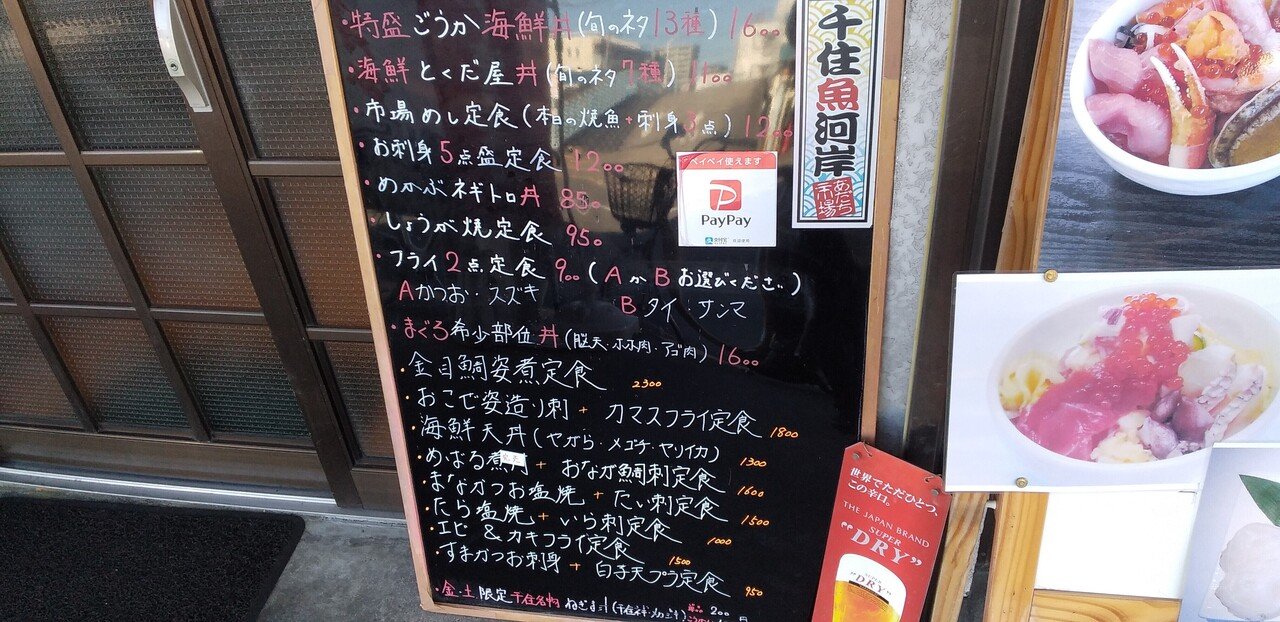 ・特盛ごうか海鮮丼(旬のネタ13種) 1600
・海鮮とくだ屋丼(旬のネタ7種) 1100
・市場めし定食(本日の焼魚+刺身3点) 1200
・お刺身5点盛定食 1200
・めかぶネギトロ丼 850
・しょうが焼定食 950
・フライ2点定食 900(AかBお選びください)
Aかつお・スズキ Bタイ・サンマ
・まぐろ希少部位丼(脳天・ホホ肉・アゴ肉) 1600
・金目鯛姿煮定食 2300
・おこぜ姿造り刺+カマスフライ定食 1800
・海鮮天丼(ヤガラ・メゴチ・ヤリイカ) 1300
・めばる煮+おなが鯛刺定食 1600
・まながつお塩焼+たい刺定食 1500
・たら塩焼+いら刺定食 1000
・エビ&カキフライ定食 1500
・すまかつお刺身+白子天プラ定食 950
・金・土限定千住名物ねぎま汁 200
ペイペイ使えます
PayPay
千住魚河岸
あだち市場
世界でただひとつ、
この辛口。
THE JAPAN BRAND
SUPER
"DRY"